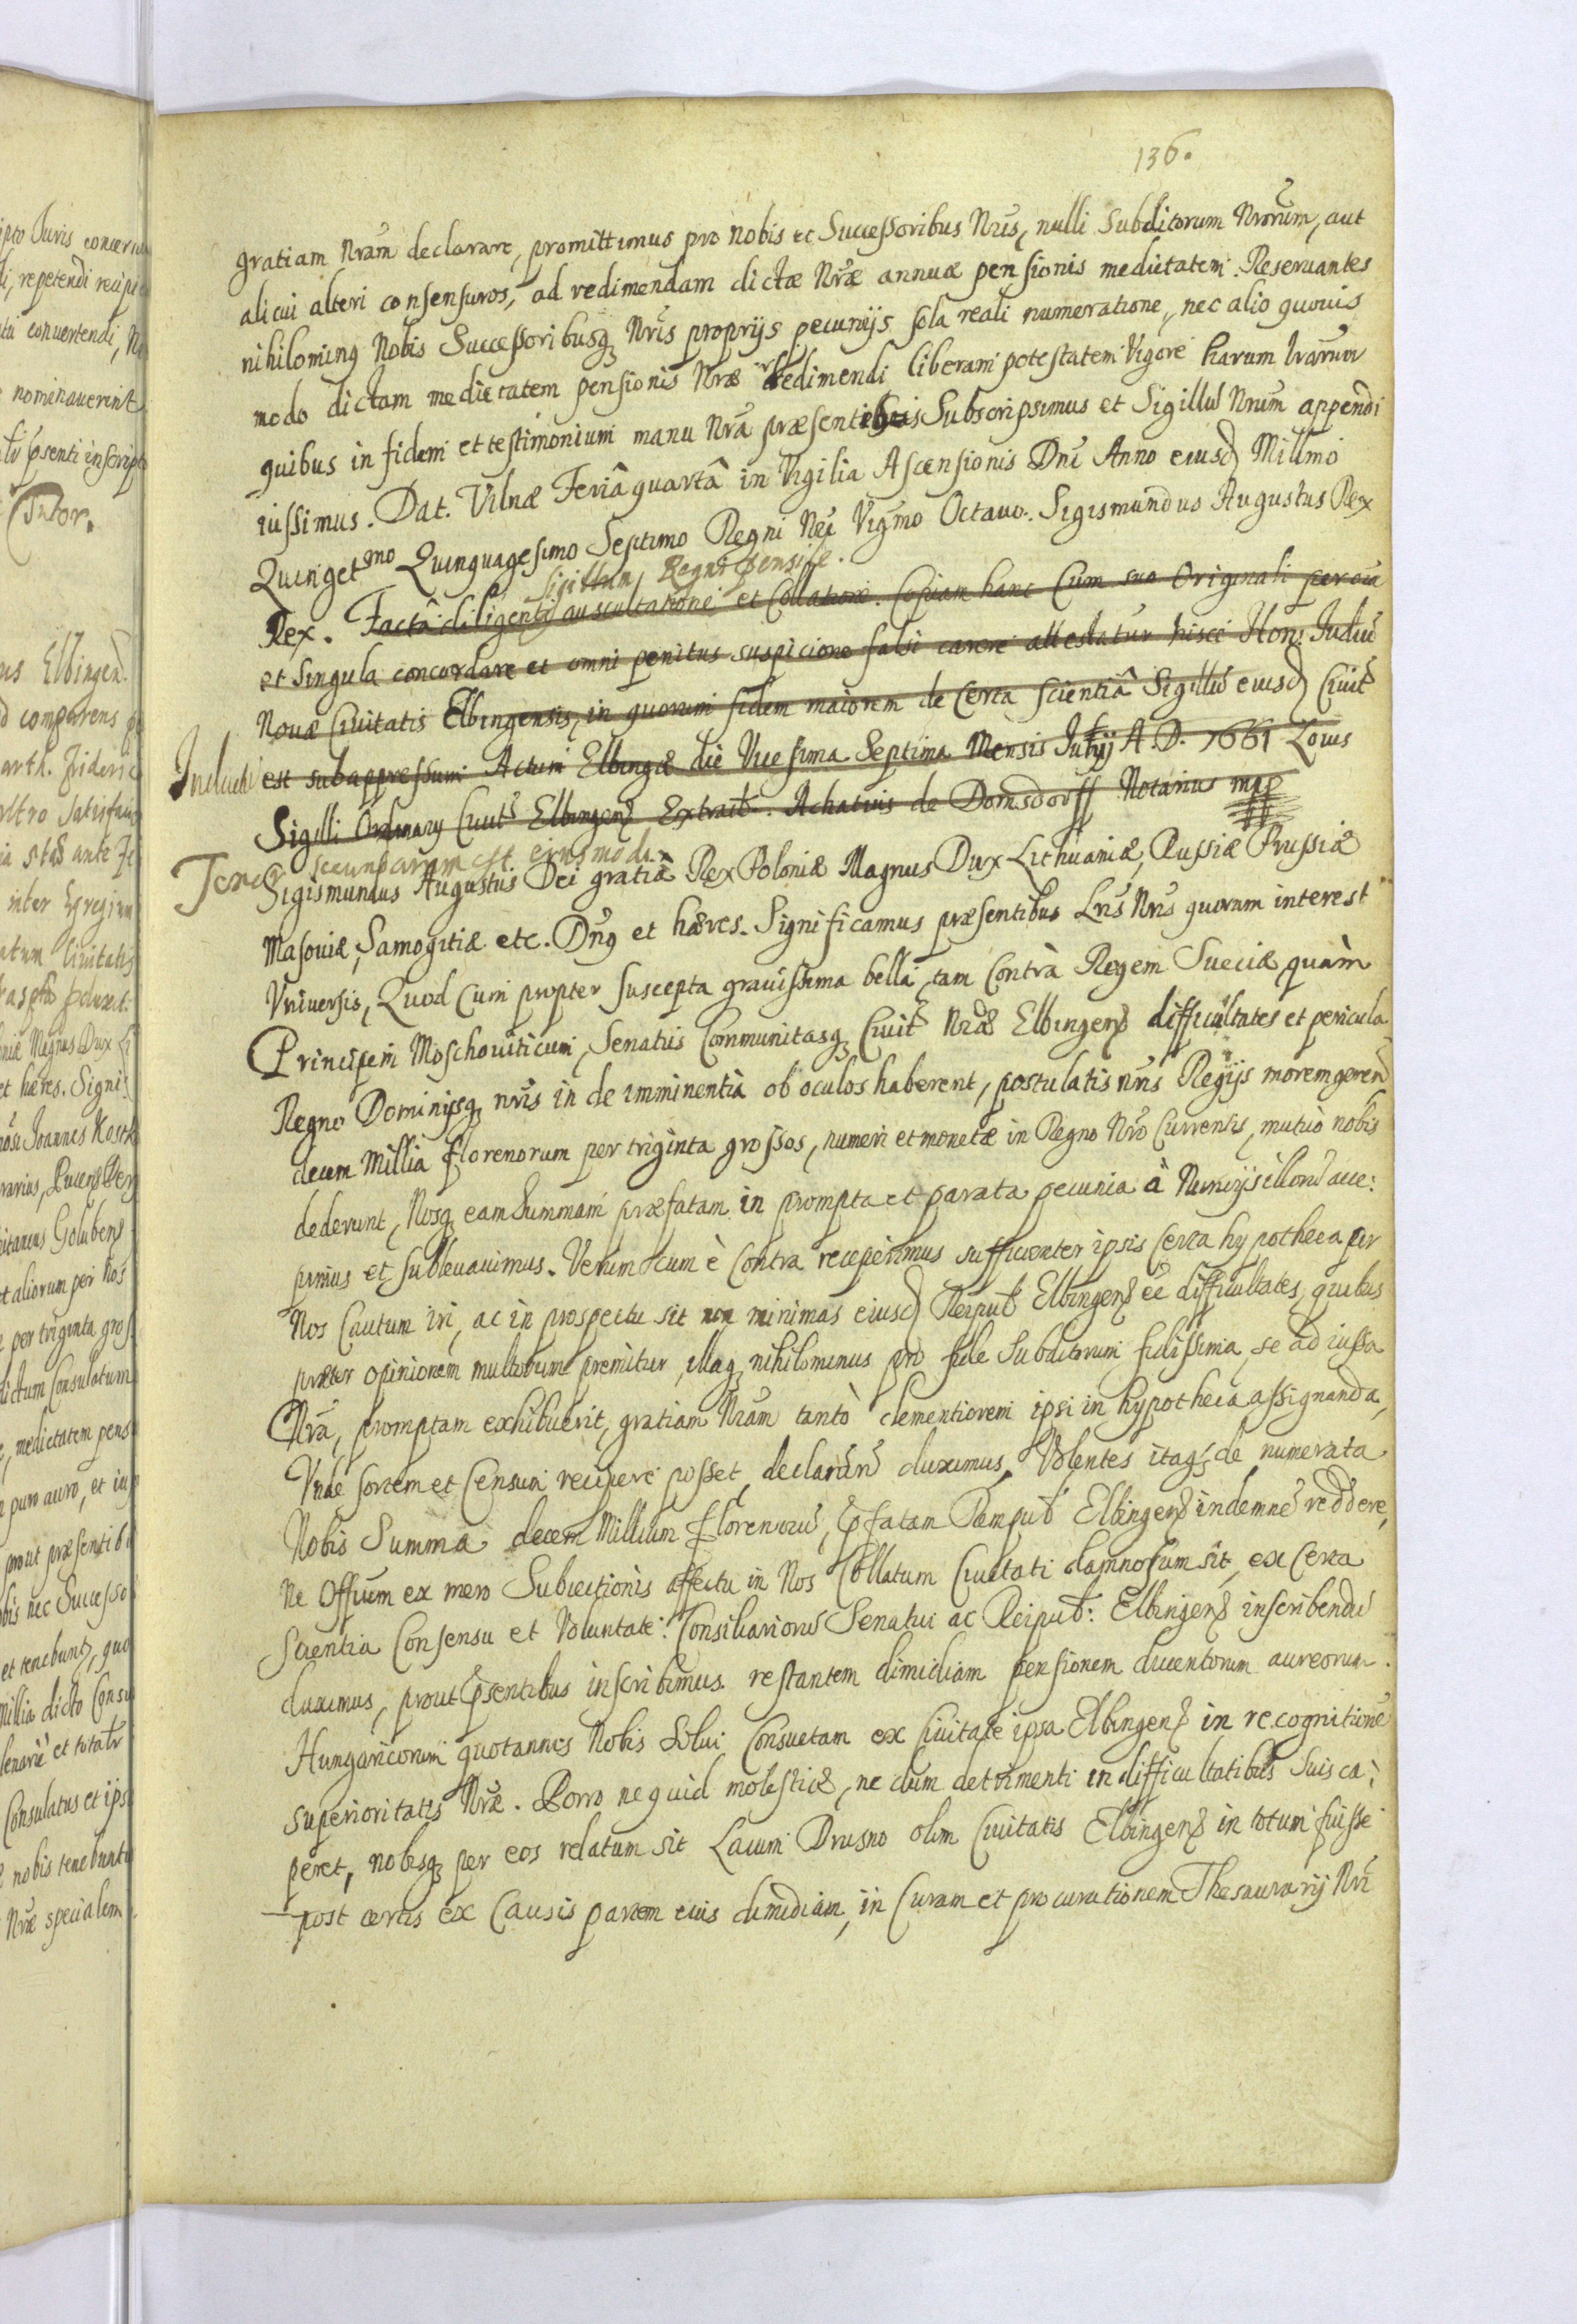 136.
gratiam Nram declarare, promittimus pro nobis et Successoribus Nris, nulli Subditorum Nrorum, aut
alicui alteri consensuros, ad redimendam dictæ Nræ annuæ pensionis medietatem. Reseruantes
nihilominq Nobis Successoribusq Nris proprijs pecunijs sola reali numeratione, nec alio quouis
modo dictam medietatem pensionis Nræ redimendi liberam potestatem Vigore harum lrarum
quibus in fidem et testimonium manu Nra præsentibus Subscripsimus et Sigillu Nrum appendi
iussimus. Dat. Vilnæ Feriâ quartâ in Vigilia Ascensionis Dni Anno eiusd Millmo
Quinget mo Quinquagesimo Septimo Regni Nri Vigmo Octauo. Sigismundus Augustus Rex
Sigillum Regni pensile.
Rex. Factâ diligenti auscultatione et Collatione. Copiam hanc Cum suo Originali per oia
et Singula concordare et omni penitus suspicione falsi carere attestatur hisce Hon: Judiu
Nouæ Ciuitatis Elbingensis, in quorum fidem maiorem de Certa scientiâ Sigillu eiusd Ciuit
Inducti est subappressum Actum Elbingæ die Vicesima Septima Mensis Julij A. D. 1661 Locus
Sigilli Ordinary Ciuits Elbingens Extradt. Achatius de Domsdorff Notarius mpp
Tenor secundarum est eiusmodi.
Sigismundus Augustus Dei gratiâ Rex Poloniæ Magnus Dux Lithuaniæ, Russiæ Prussiæ
Masouiæ, Samogitiæ etc. Dnq et hæres. Significamus præsentibus Lris Nris quorum interest
Vniuersis, Quod Cum propter suscepta grauissima bella, tam Contrà Regem Sueciæ quàm
Principem Moschouiticum, Senatus Communitasq Ciuit Nræ Elbingens difficultates et pericula
Regno Dominijsq nris inde imminentia ob oculos haberent, postulatis nris Regijs morem gerend
decem Millia florenorum per triginta grossos, numeri et monetæ in Regno Nro Currentis, mutuò nobis
dederunt, Nosq eam Summam præfatam in prompta et parata pecunia à Nuncijs illoru acce:
pimus et subleuauimus. Verum cum è Contra receperimus sufficienter ipsis Certa hypotheca per
Nos Cautum iri, ac in prospectu sit non minimas eiusd Reipub Elbingens ee difficultates, quibus
præter opinionem multorum premitur, illaq nihilominus pro fide Subditorum fidissima, se ad iussa
Nra, promptam exhibuerit, gratiam Nram tantò clementiorem ipsi in hypotheca assignanda,
Vnde sortem et Censum recipere posset, declarand duximus. Volentes itaq de numerata
Nobis Summa decem Millium florenoru, pfatam Rempub Elbingens indemne reddere,
ne Officium ex mero Subiectionis affectu in Nos Collatum Ciuitati damnosum sit, ex Certa
Scientia Consensu et Voluntate Consiliarioru Senatui ac Reipub: Elbingens inscribendu
duximus, prout psentibus inscribimus restantem dimidiam pensionem ducentorum aureorum
Hungaricorum quotannis Nobis Solui Consuetam ex Ciuitate ipsa Elbingens in recognitione
superioritatis Nræ. Porro ne quid molestiæ, nedum detrimenti in difficultatibus Suis ca:
peret, nobisq per eos relatum sit Lacum Drusno olim Ciuitatis Elbingens in totum fuisse
post certis ex Causis partem eius dimidiam, in Curam et procurationem Thesaurarij Nri